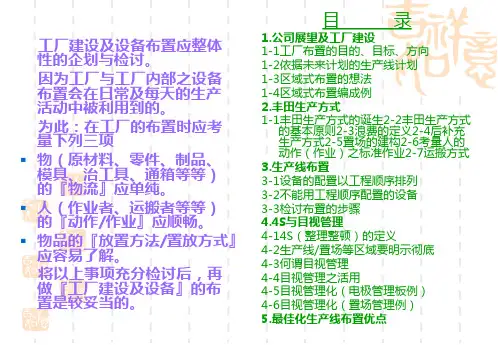 工厂建设及设备布置应整体
性的企划与检讨。
因为工厂与工厂内部之设备
布置会在日常及每天的生产
活动中被利用到的。
为此：在工厂的布置时应考
量下列三项
▪ 物（原材料、零件、制品、
模具、治工具、通箱等等）
的『物流』应单纯。
▪ 人（作业者、运搬者等等）
的『动作/作业』应顺畅。
▪ 物品的『放置方法/置放方式』
应容易了解。
将以上事项充分检讨后，再
做『工厂建设及设备』的布
置是较妥当的。
目 录
1.公司展里及工厂建设
1-1工厂布置的目的、目标、方向
1-2依据未来计划的生产线计划
1-3区域式布置的想法
1-4区域式布置编成例
2.丰田生产方式
1-1丰田生产方式的诞生2-2丰田生产方式
的基本原则2-3浪费的定义2-4后补充
生产方式2-5置场的建构2-6考量人的
动作（作业）之标准作业2-7运搬方式
3.生产线布置
3-1设备的配置以工程顺序排列
3-2不能用工程顺序配置的设备
3-3检讨布置的步骤
4.4S与目视管理
4-14S（整理整顿）的定义
4-2生产线/置场等区域要明示彻底
4-3何谓目视管理
4-4目视管理之活用
4-5目视管理化（电极管理板例）
4-6目视管理化（置场管理例）
5.最佳化生产线布置优点